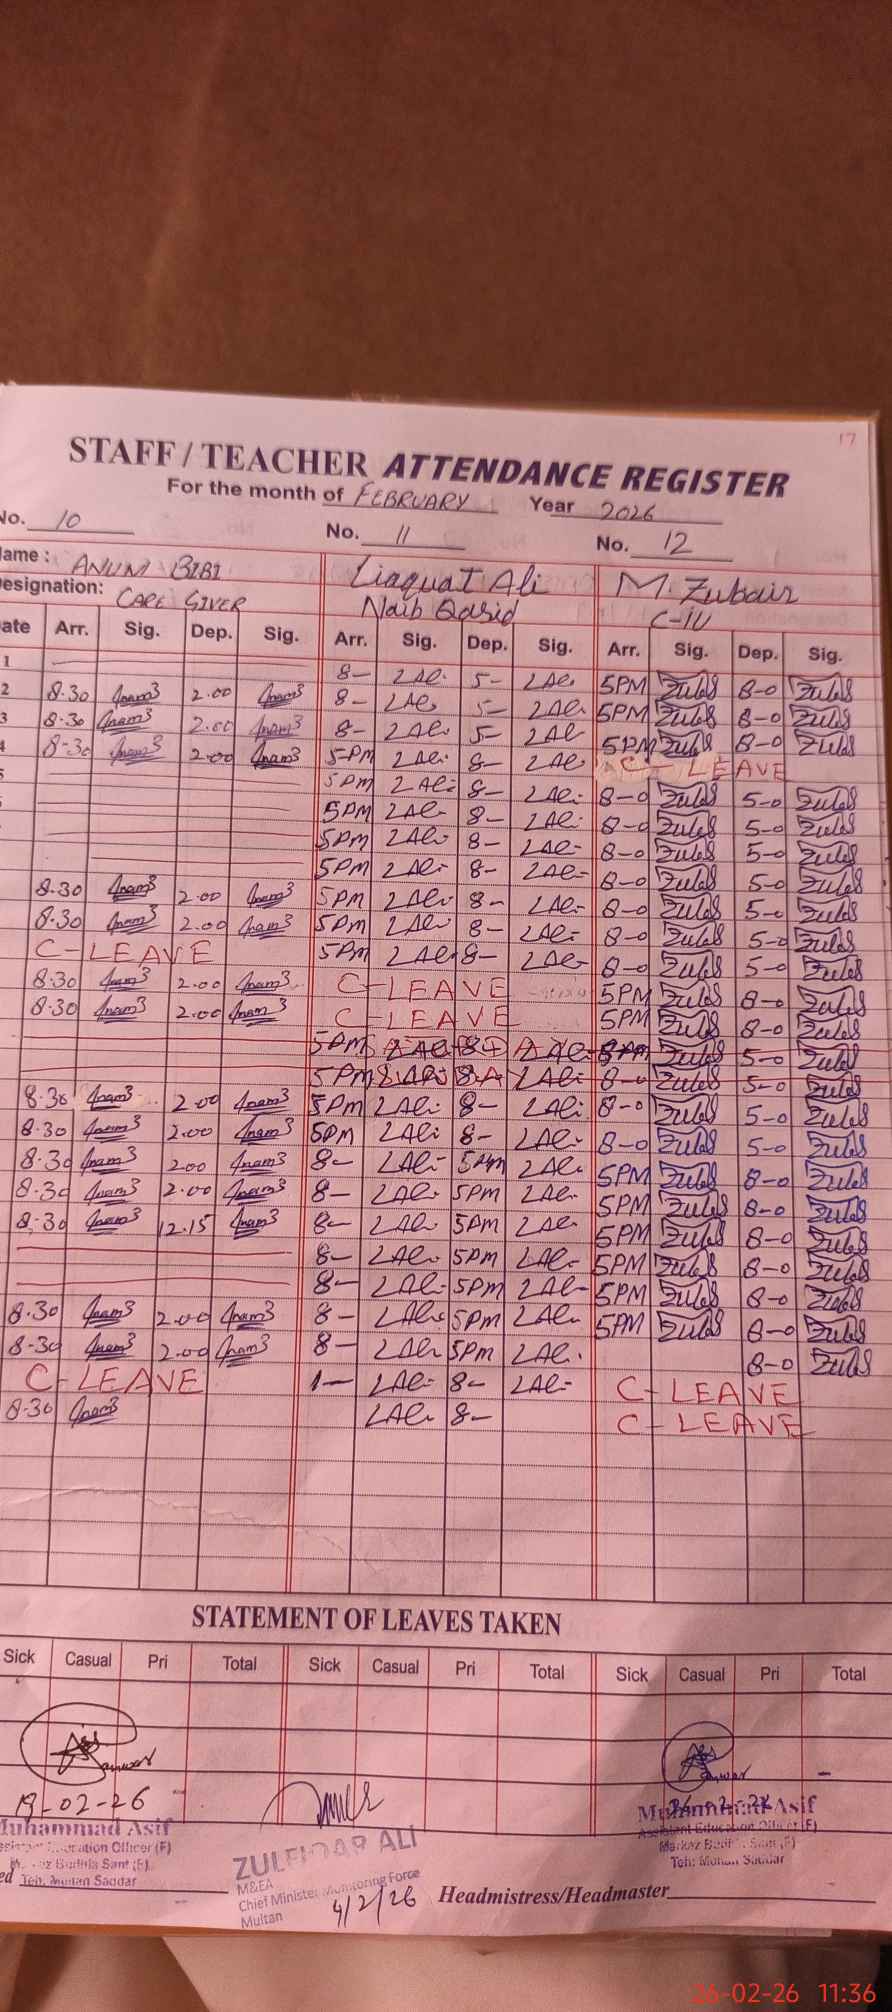 17
STAFF / TEACHER ATTENDANCE REGISTER
For the month of FEBRUARY Year 2026
No. 10 No. 11 No. 12
ame : ANUM BIBI Liaquat Ali M. Zubair
esignation: CARE GIVER Naib Qasid C-IV
ate Arr. Sig. Dep. Sig. Arr. Sig. Dep. Sig. Arr. Sig. Dep. Sig.
1 8- LAli 5- LAli 5PM Zubs 8-0 Zubs
2 8.30 Anam3 2.00 Anam3 8- LAli 5- LAli 5PM Zubs 8-0 Zubs
3 8.30 Anam3 2.00 Anam3 8- LAli 5- LAli 5PM Zubs 8-0 Zubs
8-30 Anam3 2.00 Anam3 5-PM LAli 8- LAli C-LEAVE
5PM LAli 8- LAli 8-0 Zubs 5-0 Zubs
5PM LAli 8- LAli 8-0 Zubs 5-0 Zubs
5PM LAli 8- LAli 8-0 Zubs 5-0 Zubs
5PM LAli 8- LAli 8-0 Zubs 5-0 Zubs
8.30 Anam3 2.00 Anam3 5PM LAli 8- LAli 8-0 Zubs 5-0 Zubs
8.30 Anam3 2.00 Anam3 5PM LAli 8- LAli 8-0 Zubs 5-0 Zubs
C-LEAVE 5PM LAli 8- LAli 8-0 Zubs 5-0 Zubs
8.30 Anam3 2.00 Anam3 C-LEAVE 5PM Zubs 8-0 Zubs
8.30 Anam3 2.00 Anam3 C-LEAVE 5PM Zubs 8-0 Zubs
5PM LAli 8- LAli Zubs 5-0 Zubs
5PM LAli 8- LAli 8-0 Zubs 5-0 Zubs
8.30 Anam3 2.00 Anam3 5PM LAli 8- LAli 8-0 Zubs 5-0 Zubs
8.30 Anam3 2.00 Anam3 5PM LAli 8- LAli 8-0 Zubs 5-0 Zubs
8.30 Anam3 2.00 Anam3 8- LAli 5PM LAli 5PM Zubs 8-0 Zubs
8.30 Anam3 2.00 Anam3 8- LAli 5PM LAli 5PM Zubs 8-0 Zubs
8.30 Anam3 12.15 Anam3 8- LAli 5PM LAli 5PM Zubs 8-0 Zubs
8- LAli 5PM LAli 5PM Zubs 8-0 Zubs
8- LAli 5PM LAli 5PM Zubs 8-0 Zubs
8.30 Anam3 2.00 Anam3 8- LAli 5PM LAli 5PM Zubs 8-0 Zubs
8-30 Anam3 2.00 Anam3 8- LAli 5PM LAli 8-0 Zubs
C-LEAVE 1- LAli 8- LAli C-LEAVE
8-30 Anam3 LAli 8- C-LEAVE
STATEMENT OF LEAVES TAKEN
Sick Casual Pri Total Sick Casual Pri Total Sick Casual Pri Total
19-02-26
Muhammad Asif
Assistant Education Officer (F)
Markaz Budhla Sant (F)
Teh: Multan Saddar
ZULFIQAR ALI
M&EA
Chief Minister Monitoring Force
Multan
4/2/26
Muhammad Asif
Assistant Education Officer (F)
Markaz Budhla Sant (F)
Teh: Multan Saddar
Headmistress/Headmaster
26-02-26 11:36